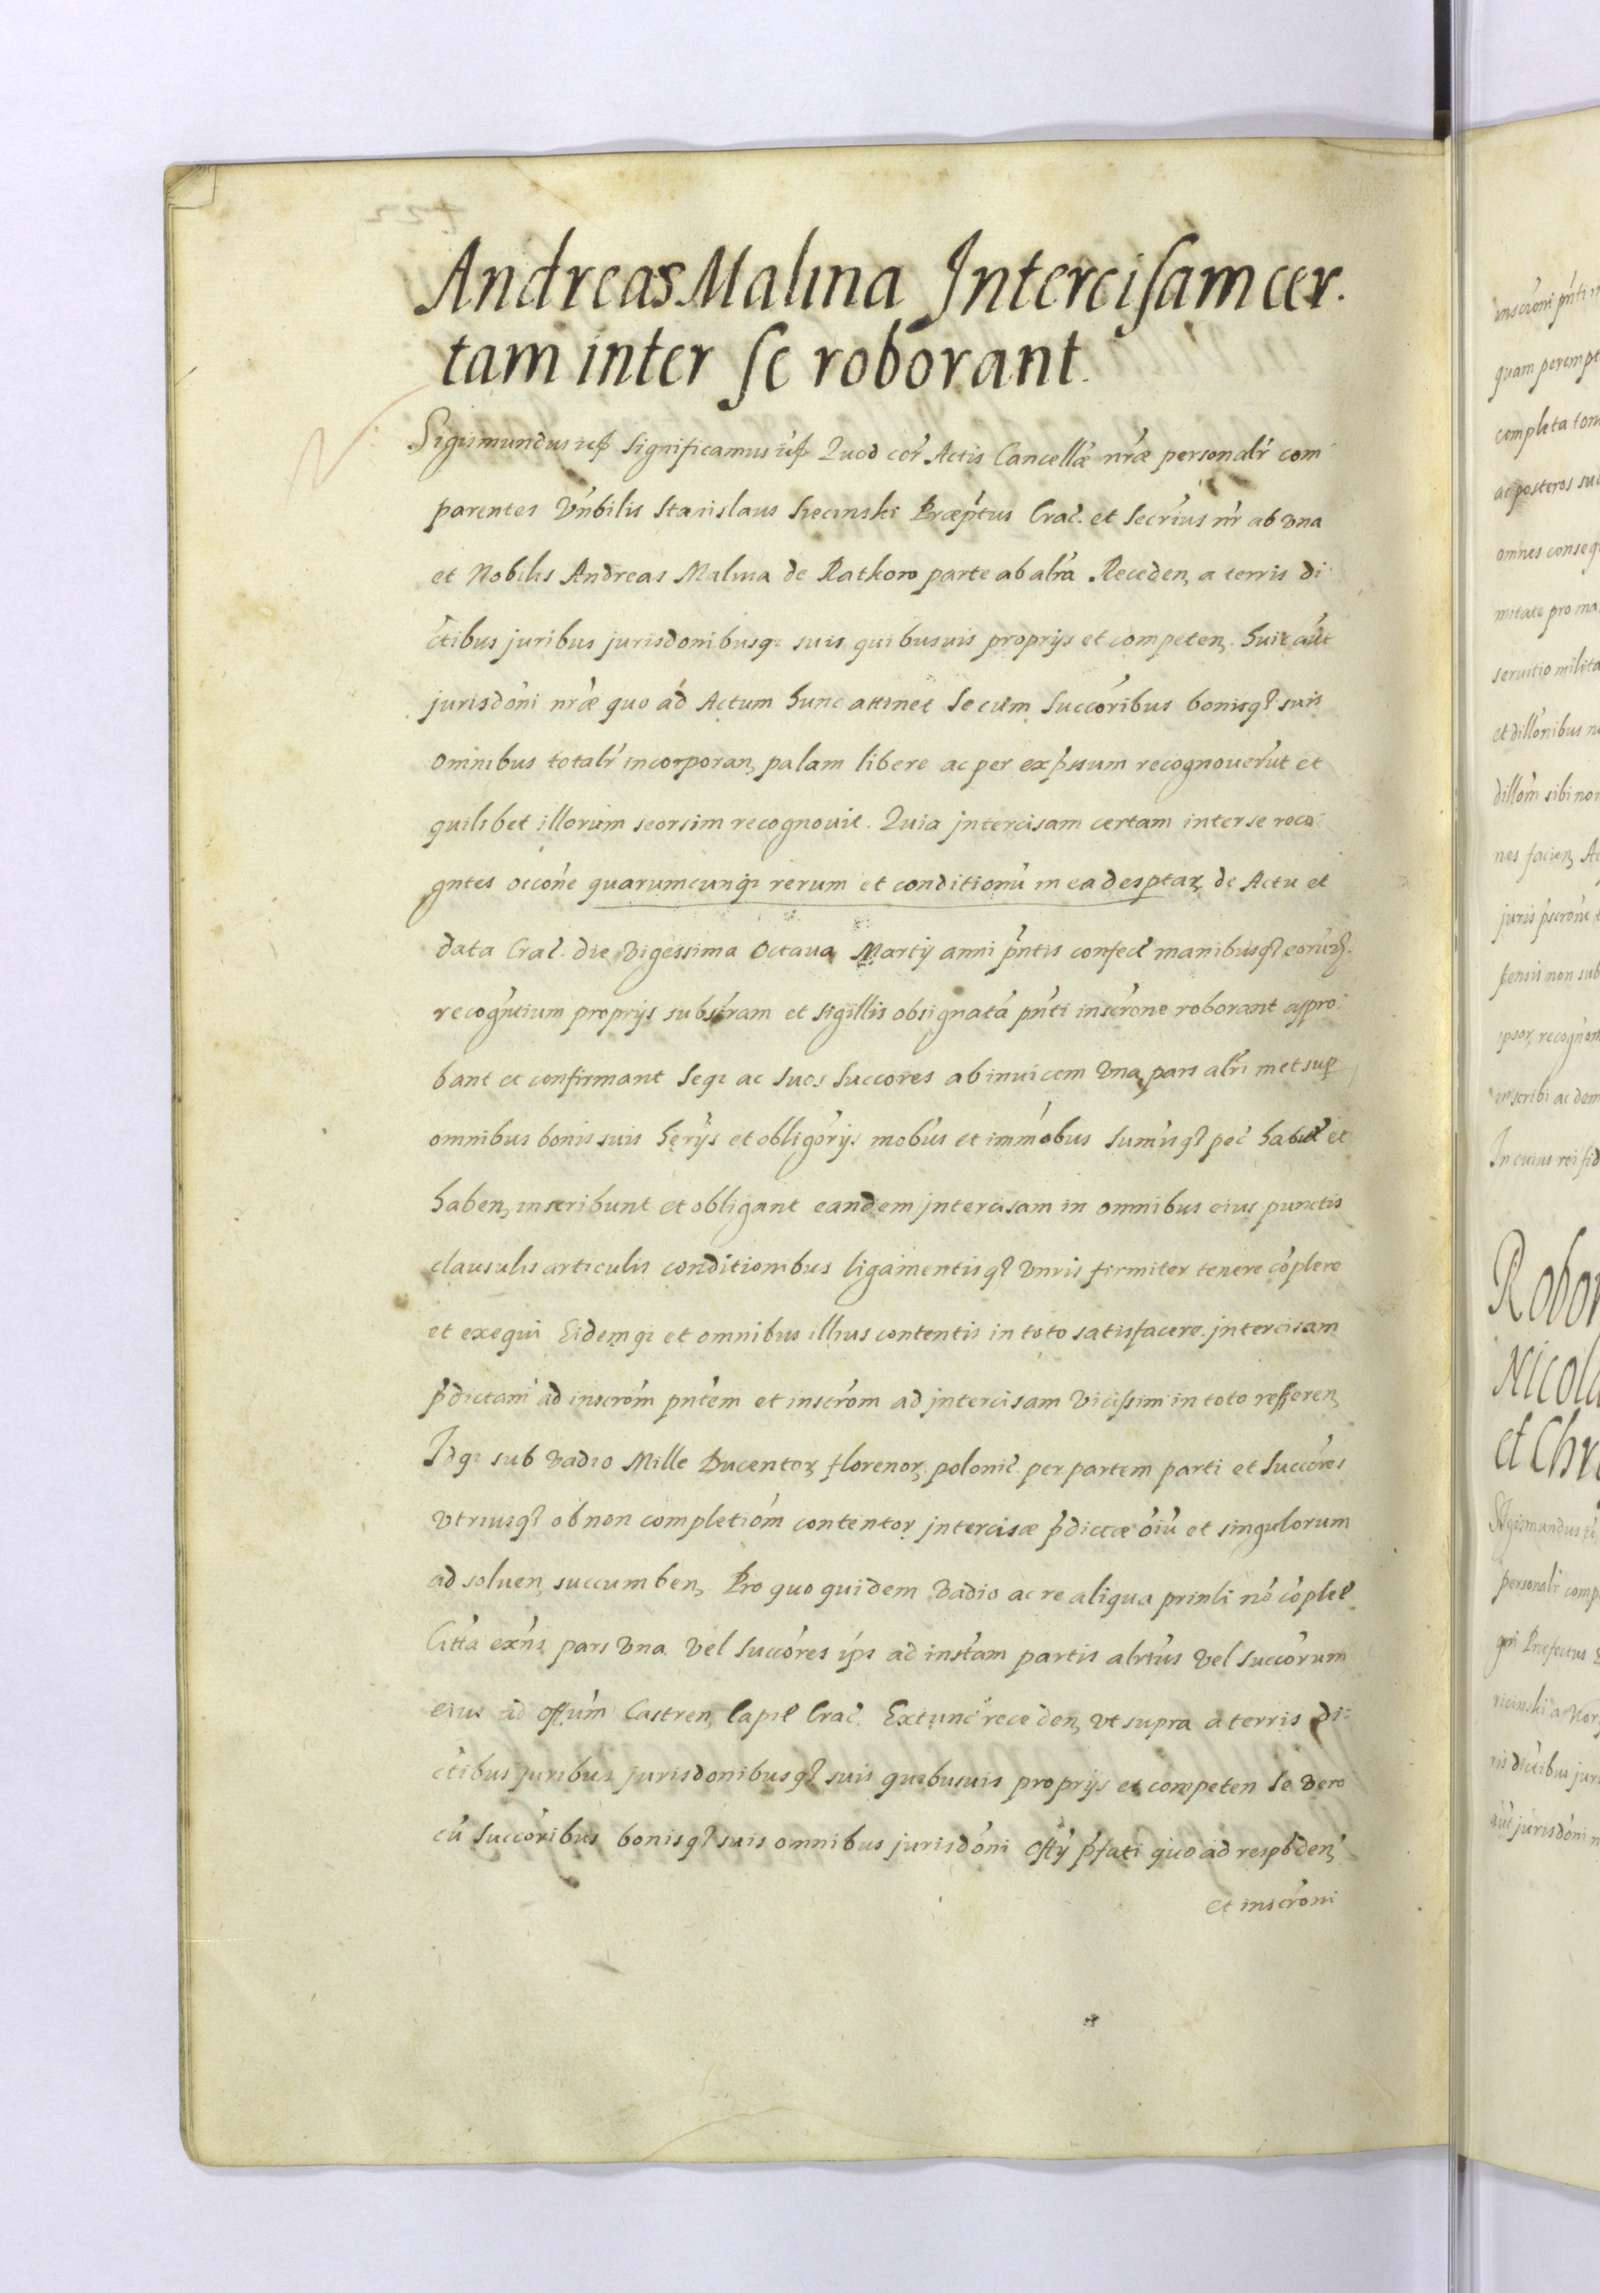 Andreas Malina Intercisam cer.
tam inter se roborant.
Sigismundus significamus Quod cor Actis Cancellæ nræ personalr com
parentes Vnbilis Stanislaus Præptus Crac. et Secrius nr ab vna
et Nobilis Andreas Malina de Ratkow parte ab alra Receden, a terris di
ctibus juribus jurisdonibusq suis quibusuis proprijs et competen. huic aut
jurisdoni nræ quo ad Actum hunc attinet se cum succoribus bonisq suis
omnibus totalr incorporan, palam libere ac per expssum recognouerut et
quilibet illorum seorsim recognouit. Quia jntercisam certam inter se reco
gntes occone quarumcunq rerum et conditionu in ea desptar, de Actu et
data Crac. die vigessima Octaua Martij anni pntis confect manibusq eorum
recogntium proprijs subscram et sigillis obsignata pnti inscrone roborant appro
bant et confirmant seq ac suos succores ab inuicem vna pars alri met sup
omnibus bonis suis herijs et obligorijs mobus et immobus sumisq pec habit et
haben, inscribunt et obligant eandem jntercisam in omnibus eius punctis
clausulis articulis conditionibus ligamentisq vnris firmiter tenere coplere
et exequi Eidemq et omnibus illius contentis in toto satisfacere. jntercisam
pdictam ad inscrom pntem et inscrom ad jntercisam vicissim in toto referen,
Idq sub vadio Mille Ducentor, florenor. polonic. per partem parti et succores
vtriusq ob non completiom contentor, jntercisæ pdictæ oiu et singulorum
ad soluen, succumben, Pro quo quidem vadio ac re aliqua prinli no coplet
Citta exns pars vna vel succores ips ad instam partis alrius vel succorum
eius ad offium Castren, Capit Crac. Extunc receden, vt supra a terris di:
ctibus juribus jurisdonibusq suis quibusuis proprijs et competen se vero
cu succoribus bonisq suis omnibus jurisdoni offij pfati quo ad respoden,
et inscroni
inscroni pnti
quam perempt
completa
ac posteros suc
omnes conseq
mitate pro
seruitio milita
et dillonibus n
dillom sibi non
nes facien, Ac
juris pscrom
non sub
ipsor, recognon
inscribi ac dem
In cuius rei fid
Robor
Nicola
et Chr
Sigismundus
personalr comp
Præfectus
ris dictibus juri
aut jurisdoni n